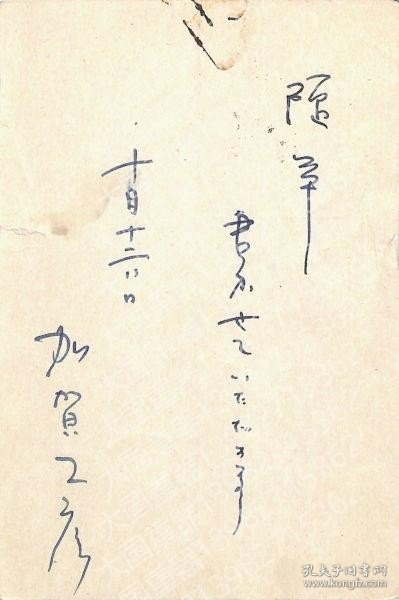 随筆
書かせていただきます
十月十二日
加賀乙彦
孔夫子旧书网
www.kongfz.com